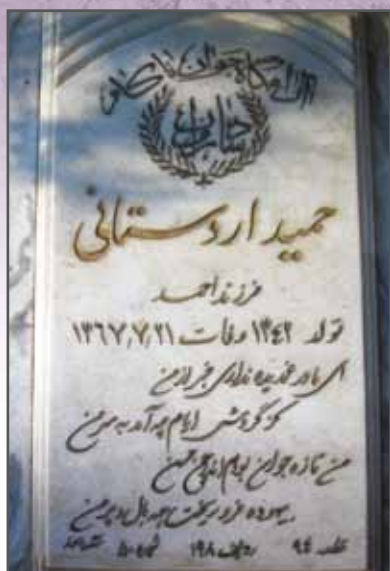 آرامگاه جوان ناکام
حمید اردستانی
فرزند احمد
تولد ۱۳۴۲ وفات ۱۳۶۷,۷,۲۱
ای مادر غمدیده نداری خبر از من
کز گردش ایام چه آمد به سر من
من تازه جوان بودم اندر چمن
بیهوده فرو ریخت همه بال و پر من
قطعه ۹۴ ردیف ۱۹۸